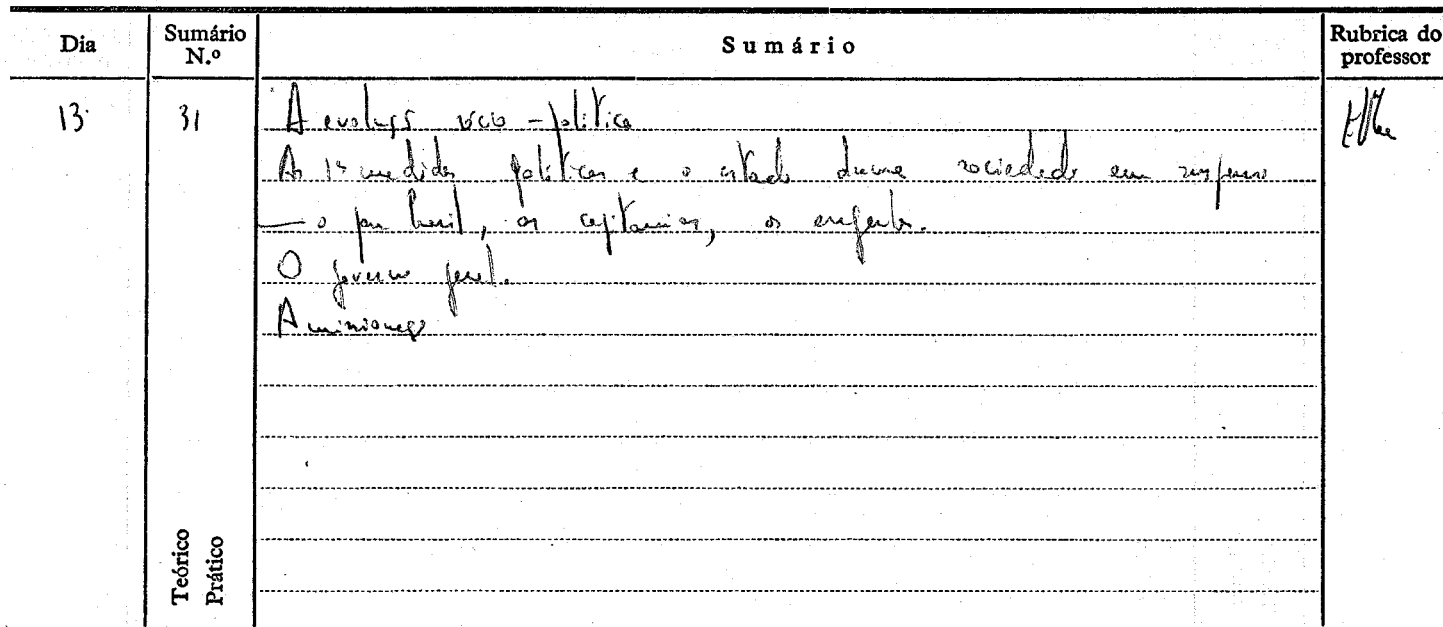 Dia
Sumário N.º
Sumário
Rubrica do professor
13
31
A evoluçõ sócio-política
As 1as medidas políticas e o estado duma sociedade em
— o pau brasil, as capitanias, os engenhos.
O governo geral.
A
Teórico
Prático